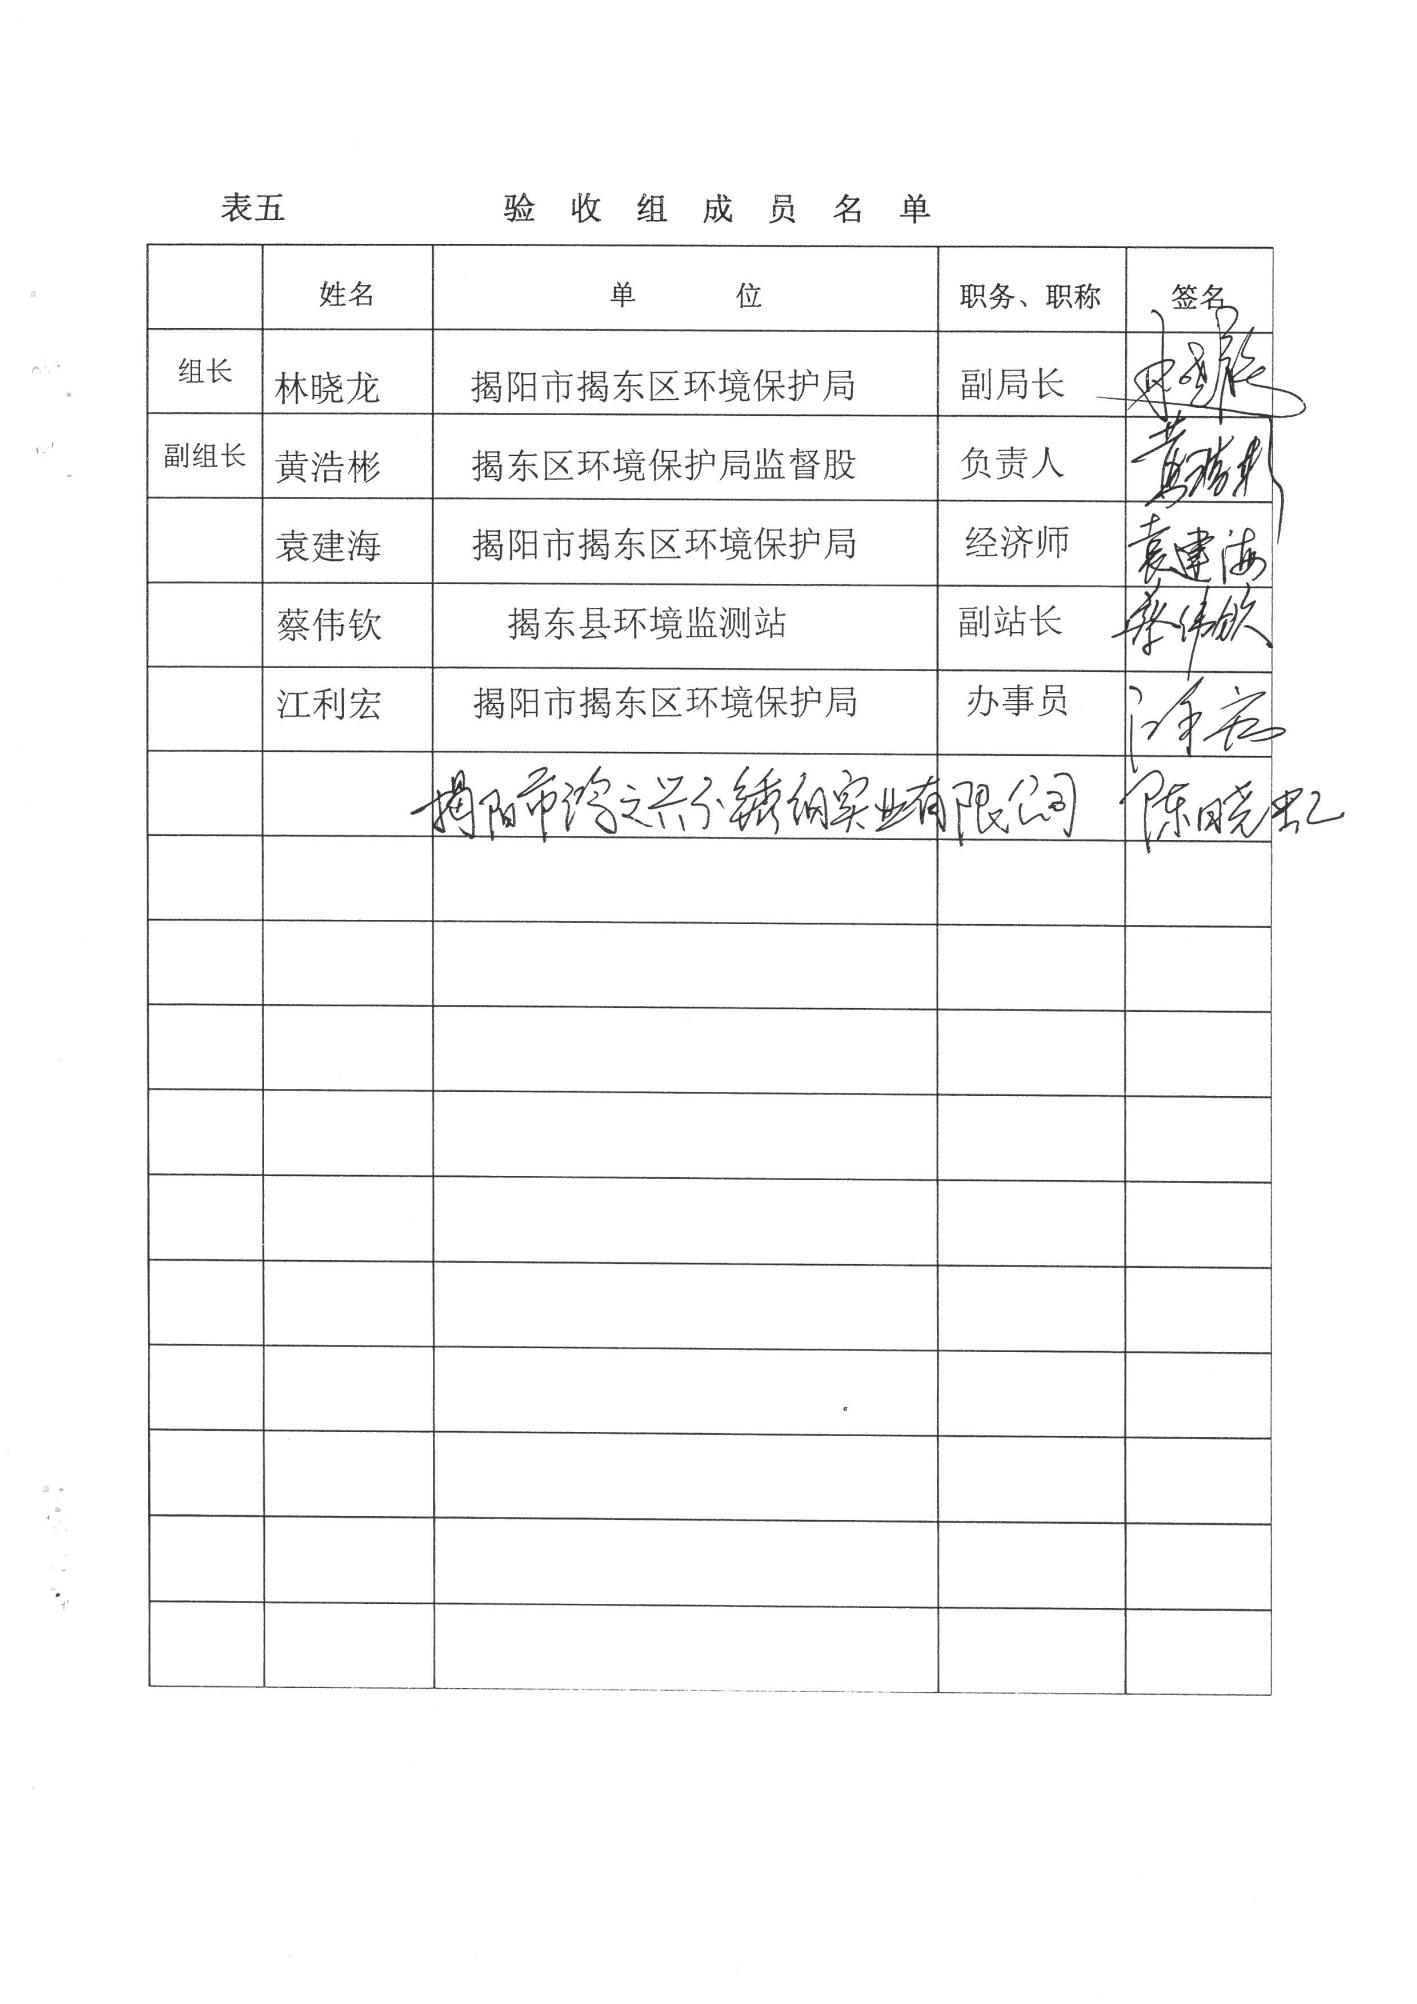 表五 验收组成员名单
姓名 单位 职务、职称 签名
组长 林晓龙 揭阳市揭东区环境保护局 副局长
副组长 黄浩彬 揭东区环境保护局监督股 负责人 黄浩彬
袁建海 揭阳市揭东区环境保护局 经济师 袁建海
蔡伟钦 揭东县环境监测站 副站长 蔡伟钦
江利宏 揭阳市揭东区环境保护局 办事员
揭阳市 之兴不锈钢实业有限公司 陈晓虹